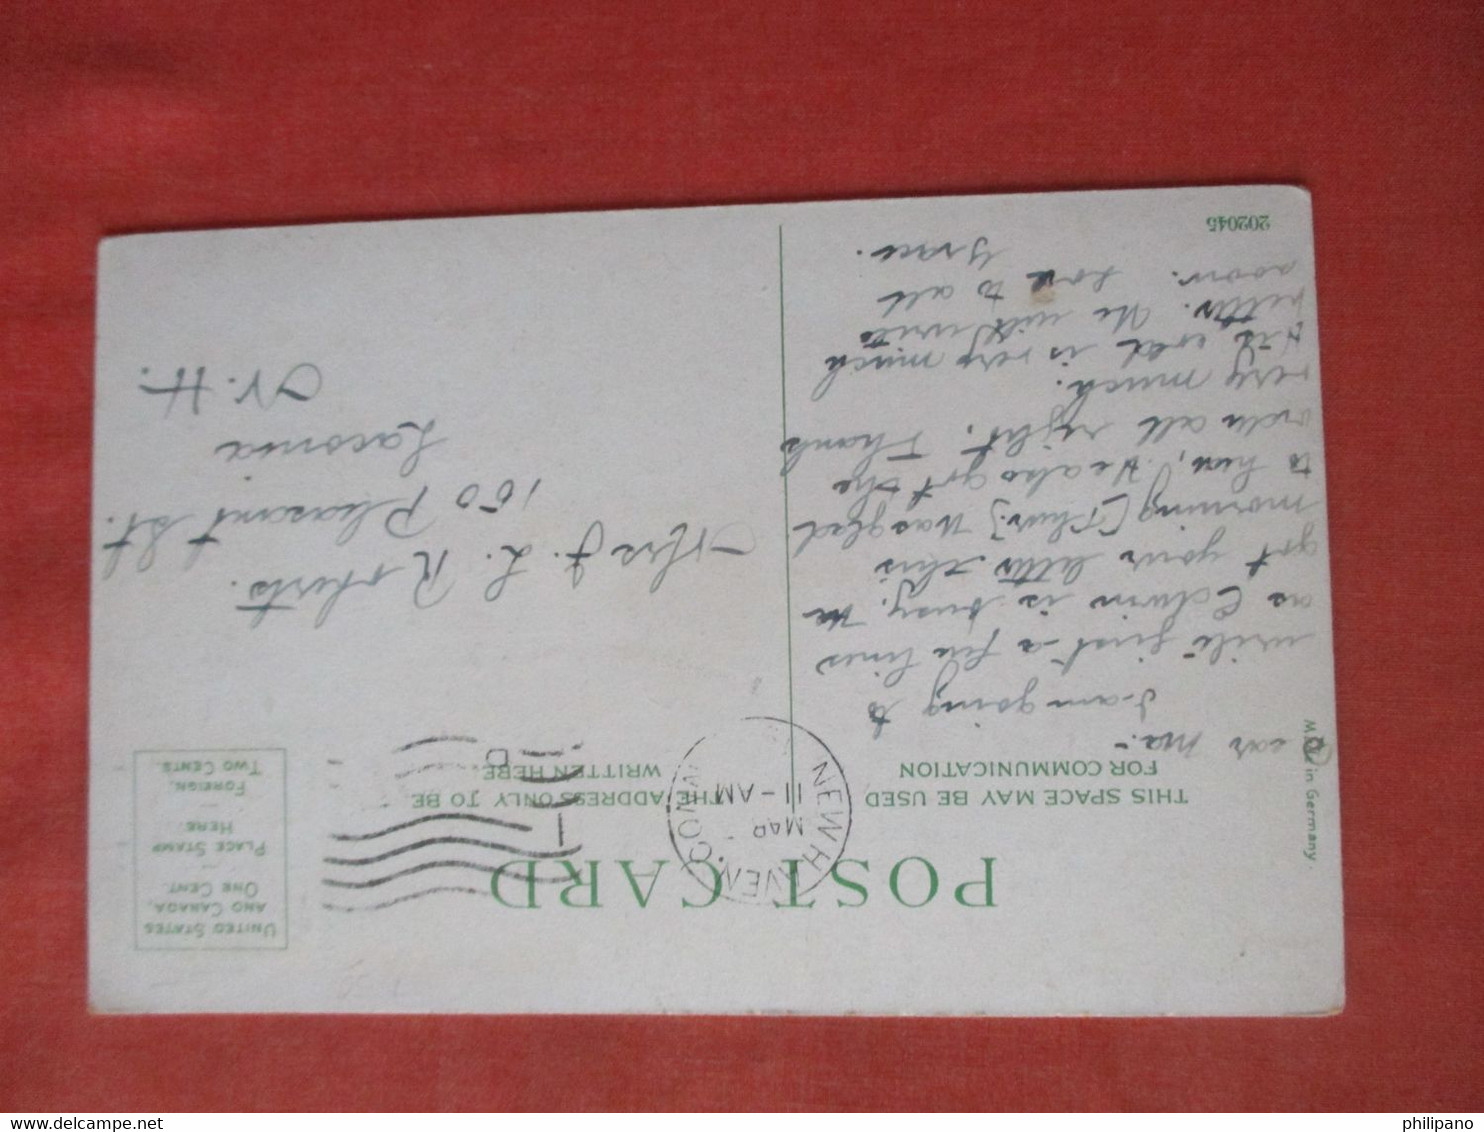 POST CARD
THIS SPACE MAY BE USED
FOR COMMUNICATION
THE ADDRESS ONLY TO BE
WRITTEN HERE.
UNITED STATES
AND CANADA,
ONE CENT.
PLACE STAMP
HERE.
FOREIGN,
TWO CENTS.
NEW HAVEN, CONN.
MAR
11-AM
ear Ma:-
I am going to
write first a few lines
as Edwin is busy. He
got your letter this
morning [Thur.] Was glad
to hear, He also got the
order all right. Thank
very much.
His cold is very much
better. He will write
soon. Love to all
Grace.
Mrs J. L. Roberts.
160 Pleasant St.
Laconia
N. H.
in Germany.
202045
philipano
delcampe.net